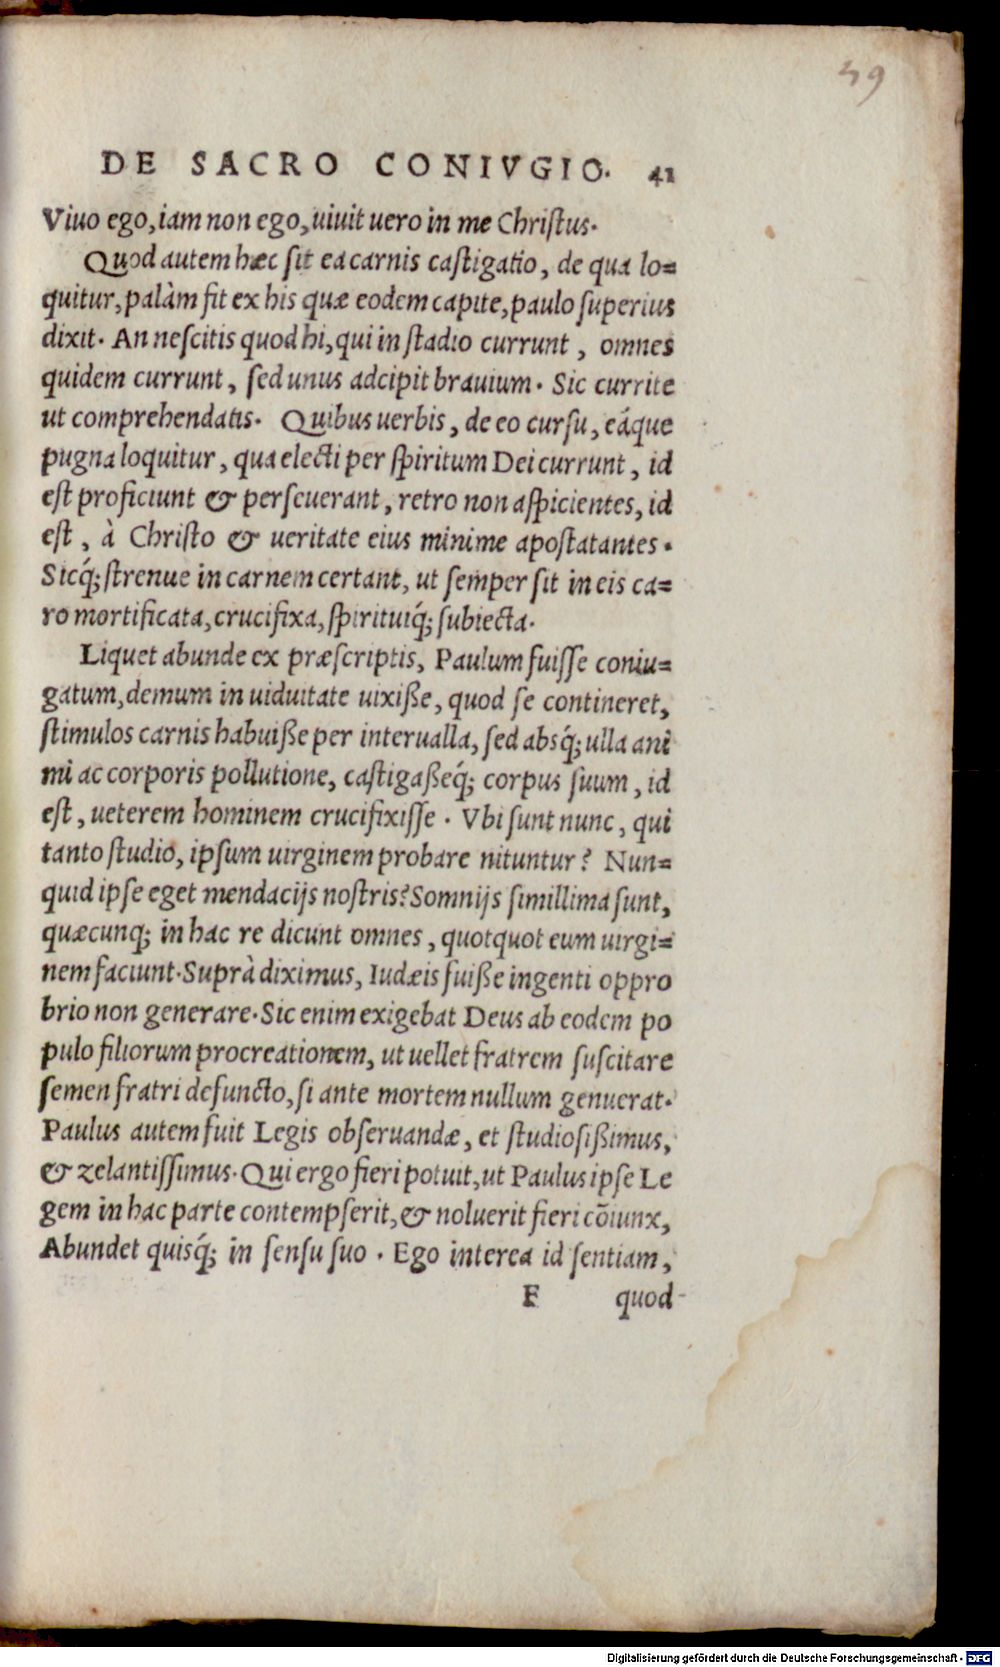 49
DE SACRO CONIVGIO. 41
Viuo ego, iam non ego, uiuit uero in me Christus.
Quod autem hæc sit ea carnis castigatio, de qua lo=
quitur, palàm fit ex his quæ eodem capite, paulo superius
dixit. An nescitis quod hi, qui in stadio currunt, omnes
quidem currunt, sed unus adcipit brauium. Sic currite
ut comprehendatis. Quibus uerbis, de eo cursu, eáque
pugna loquitur, qua electi per spiritum Dei currunt, id
est proficiunt & perseuerant, retro non aspicientes, id
est, à Christo & ueritate eius minime apostatantes.
Sicq́; strenue in carnem certant, ut semper sit in eis ca=
ro mortificata, crucifixa, spirituiq́; subiecta.
Liquet abunde ex præscriptis, Paulum fuisse coniu=
gatum, demum in uiduitate uixiße, quod se contineret,
stimulos carnis habuiße per interualla, sed absq́; ulla ani
mi ac corporis pollutione, castigaßeq́; corpus suum, id
est, ueterem hominem crucifixisse. Vbi sunt nunc, qui
tanto studio, ipsum uirginem probare nituntur? Nun=
quid ipse eget mendacijs nostris? Somnijs simillima sunt,
quæcunq; in hac re dicunt omnes, quotquot eum uirgi=
nem faciunt. Suprà diximus, Iudæis fuiße ingenti oppro
brio non generare. Sic enim exigebat Deus ab eodem po
pulo filiorum procreationem, ut uellet fratrem suscitare
semen fratri defuncto, si ante mortem nullum genuerat.
Paulus autem fuit Legis obseruandæ, et studiosißimus,
& zelantissimus. Qui ergo fieri potuit, ut Paulus ipse Le
gem in hac parte contempserit, & noluerit fieri cõiunx,
Abundet quisq́; in sensu suo. Ego interea id sentiam,
F quod
Digitalisierung gefördert durch die Deutsche Forschungsgemeinschaft - DFG